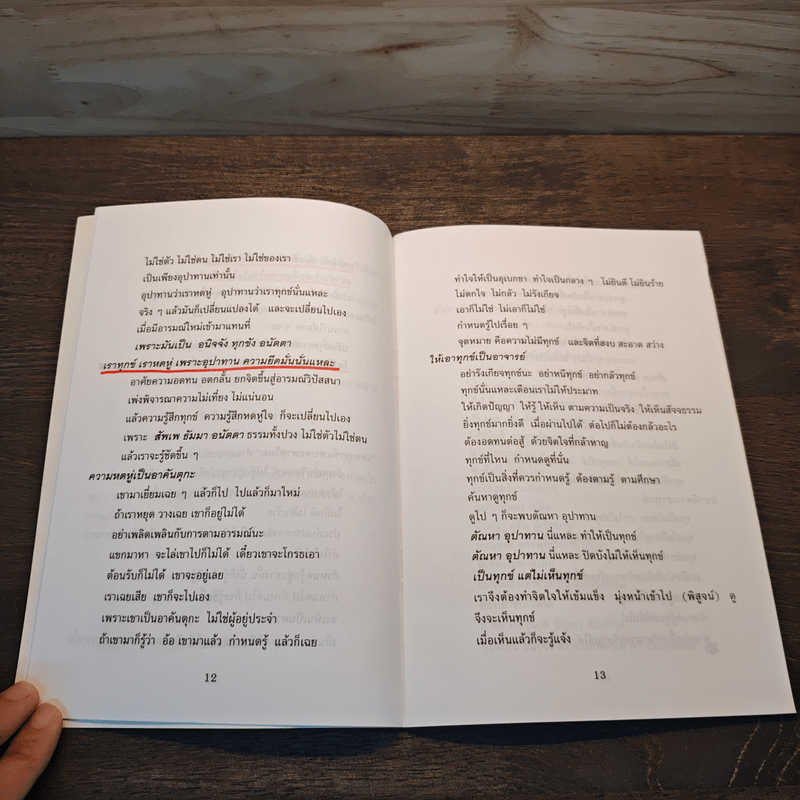 ไม่ใช่ตัว ไม่ใช่ตน ไม่ใช่เรา ไม่ใช่ของเรา
เป็นเพียงอุปาทานเท่านั้น
อุปาทานว่าเราหดหู่ อุปาทานว่าเราทุกข์นั่นแหละ
จริง ๆ แล้วมันก็เปลี่ยนแปลงได้ และจะเปลี่ยนไปเอง
เมื่อมีอารมณ์ใหม่เข้ามาแทนที่
เพราะมันเป็น อนิจจัง ทุกขัง อนัตตา
เราทุกข์ เราหดหู่ เพราะอุปาทาน ความยึดมั่นนั่นแหละ
อาศัยความอดทน อดกลั้น ยกจิตขึ้นสู่อารมณ์วิปัสสนา
เพ่งพิจารณาความไม่เที่ยง ไม่แน่นอน
แล้วความรู้สึกทุกข์ ความรู้สึกหดหู่ใจ ก็จะเปลี่ยนไปเอง
เพราะ สัพเพ ธัมมา อนัตตา ธรรมทั้งปวง ไม่ใช่ตัวไม่ใช่ตน
แล้วเราจะรู้ชัดขึ้น ๆ
ความหดหู่เป็นอาคันตุกะ
เขามาเยี่ยมเฉย ๆ แล้วก็ไป ไปแล้วก็มาใหม่
ถ้าเราหยุด วางเฉย เขาก็อยู่ไม่ได้
อย่าเพลิดเพลินกับการตามอารมณ์นะ
แขกมาหา จะไล่เขาไปก็ไม่ได้ เดี๋ยวเขาจะโกรธเอา
ต้อนรับก็ไม่ได้ เขาจะอยู่เลย
เราเฉยเสีย เขาก็จะไปเอง
เพราะเขาเป็นอาคันตุกะ ไม่ใช่ผู้อยู่ประจำ
ถ้าเขามาก็รู้ว่า อ้อ เขามาแล้ว กำหนดรู้ แล้วก็เฉย
12
ทำใจให้เป็นอุเบกขา ทำใจเป็นกลาง ๆ ไม่ยินดี ไม่ยินร้าย
ไม่ตกใจ ไม่กลัว ไม่รังเกียจ
เอาก็ไม่ใช่ ไม่เอาก็ไม่ใช่
กำหนดรู้ไปเรื่อย ๆ
จุดหมาย คือความไม่มีทุกข์ และจิตที่สงบ สะอาด สว่าง
ให้เอาทุกข์เป็นอาจารย์
อย่ารังเกียจทุกข์นะ อย่าหนีทุกข์ อย่ากลัวทุกข์
ทุกข์นั่นแหละเตือนเราไม่ให้ประมาท
ให้เกิดปัญญา ให้รู้ ให้เห็น ตามความเป็นจริง ให้เห็นสัจจธรรม
ยิ่งทุกข์มากยิ่งดี เมื่อผ่านไปได้ ต่อไปก็ไม่ต้องกลัวอะไร
ต้องอดทนต่อสู้ ด้วยจิตใจที่กล้าหาญ
ทุกข์ที่ไหน กำหนดดูที่นั่น
ทุกข์เป็นสิ่งที่ควรกำหนดรู้ ต้องตามรู้ ตามศึกษา
ค้นหาดูทุกข์
ดูไป ๆ ก็จะพบตัณหา อุปาทาน
ตัณหา อุปาทาน นี่แหละ ทำให้เป็นทุกข์
ตัณหา อุปาทาน นี่แหละ ปิดบังไม่ให้เห็นทุกข์
เป็นทุกข์ แต่ไม่เห็นทุกข์
เราจึงต้องทำจิตใจให้เข้มแข็ง มุ่งหน้าเข้าไป (พิสูจน์) ดู
จึงจะเห็นทุกข์
เมื่อเห็นแล้วก็จะรู้แจ้ง
13